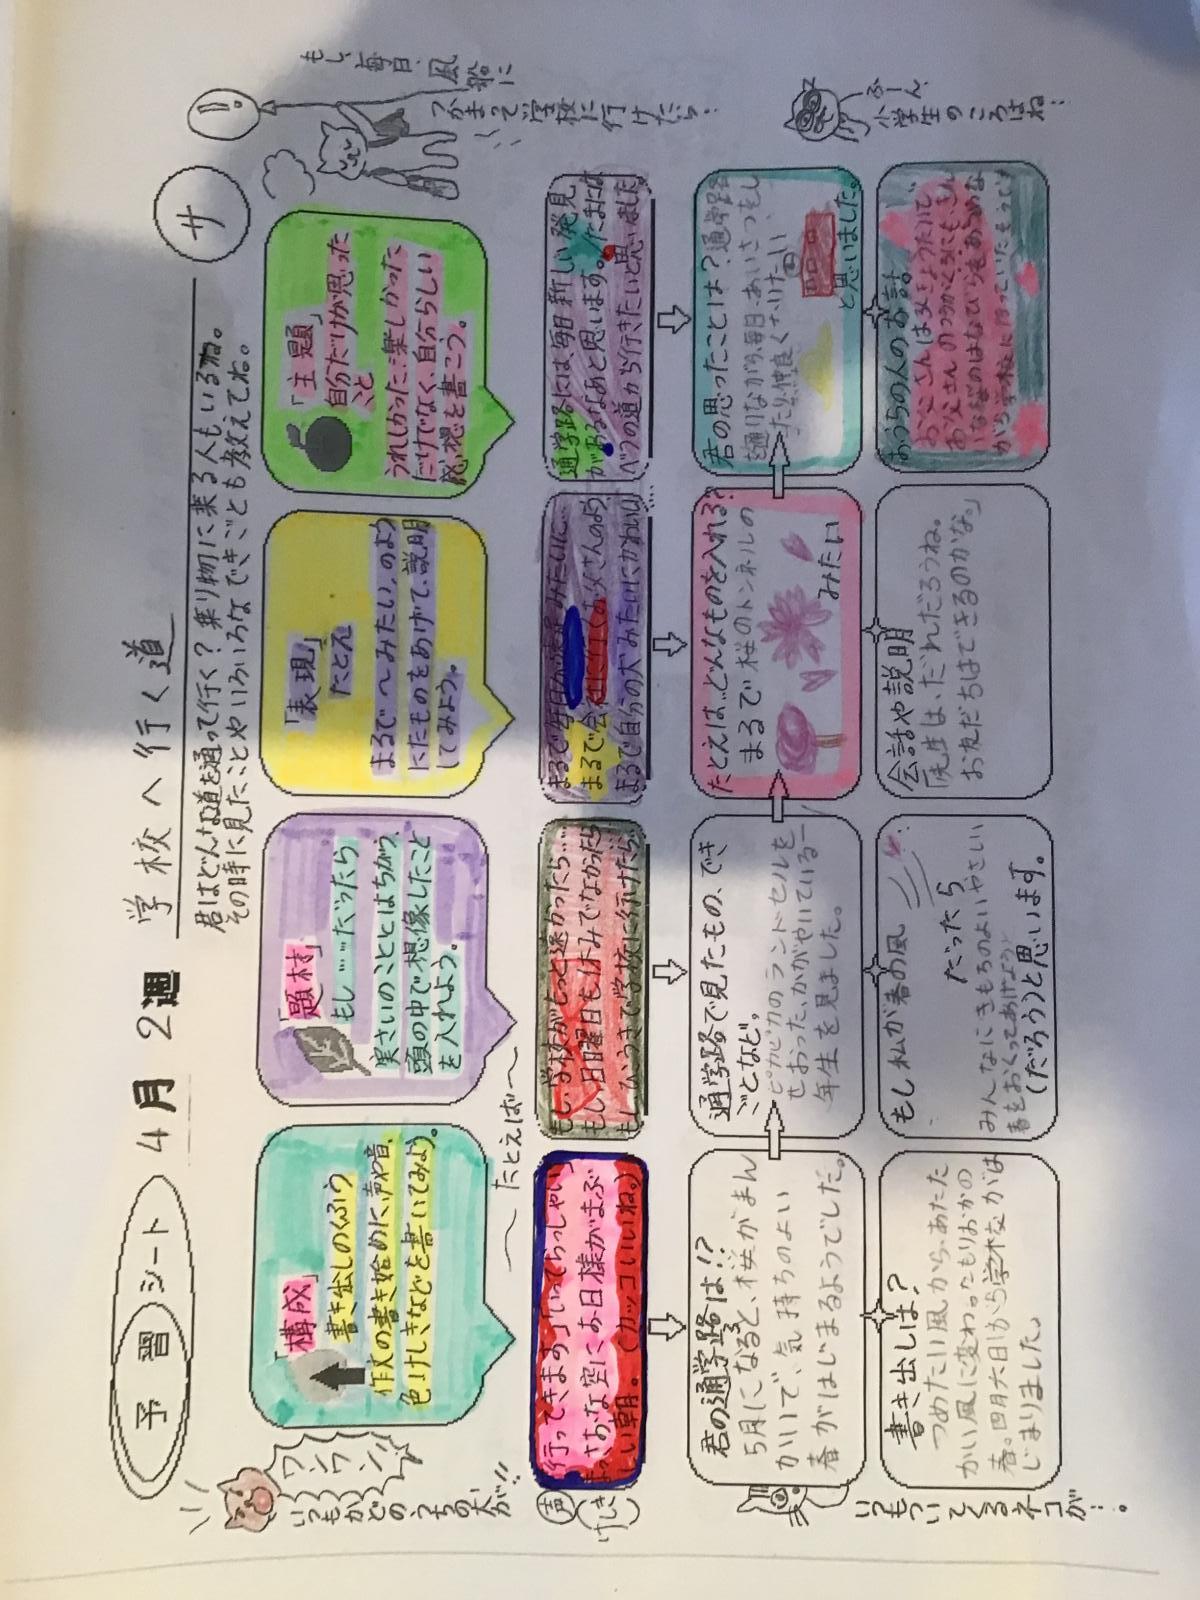 予習シート 4月 2週 学校へ行く道
サ
君はどんな道を通って行く?乗り物に来る人もいるね。
その時に見たことやいろいろなできごとも教えてね。
ワンワン
いつもかどのうちの犬が!!
「構成」
書き出しのくふう
作文の書き始めに、声や音、
色、けしきなどを書いてみよう。
「題材」
もし……だったら
実さいのこととはちがう、
頭の中で想像したこと
を入れよう。
「表現」
たとえ
まるで〜みたい、のよう
にたものをあげて、説明
してみよう。
「主題」
自分だけが思った
こと
うれしかった、楽しかった
だけでなく、自分らしい
感想を書こう。
もし、毎日、風船に
つかまって学校に行けたら!
〜たとえば〜
声
けしき
行ってきます。」「いってらっしゃい」
まっさおな空にお日様がまぶ
しい朝。(カッコいいね。)
もし、学校がもっと遠かったら…
もし、日曜日も休みでなかったら
もし、ひこうきで学校に行けたら
まるで毎日が みたいに…
まるで会社に行くお父さんのよう
まるで自分の犬みたいにかわいい…
通学路には、毎日新しい発見
があるなあと思います。たまには
べつの道から行きたいと思いました
君の通学路は!?
5月になると、桜がまん
かいで、気持ちのよい
春がはじまるようでした。
通学路で見たもの、でき
ごとなど。
ピカピカのランドセルを
せおった、かがやいている一
年生を見ました。
たとえば…どんなものを入れる?
まるで桜のトンネルの
みたい
君の思ったことは?通学路
を通りながら、毎日、あいさつをし
たり、仲良くなりたい
と思いました。
ふーん
小学生のころはね…
いつもついてくるネコが…。
書き出しは?
つめたい風から、あたた
かい風に変わったもりおかの
春。四月六日から学校がは
じまりました。
もし 私が春の風
だったら
みんなにきもちのよいやさしい
春をおくってあげよう
(だろう)と思います。
会話や説明
「先生は、だれだろうね。
お友だちはできるのかな。」
おうちの人のお話
お父さんは
お父さんのつうがくろにも、
がら学校に行っていたそうです